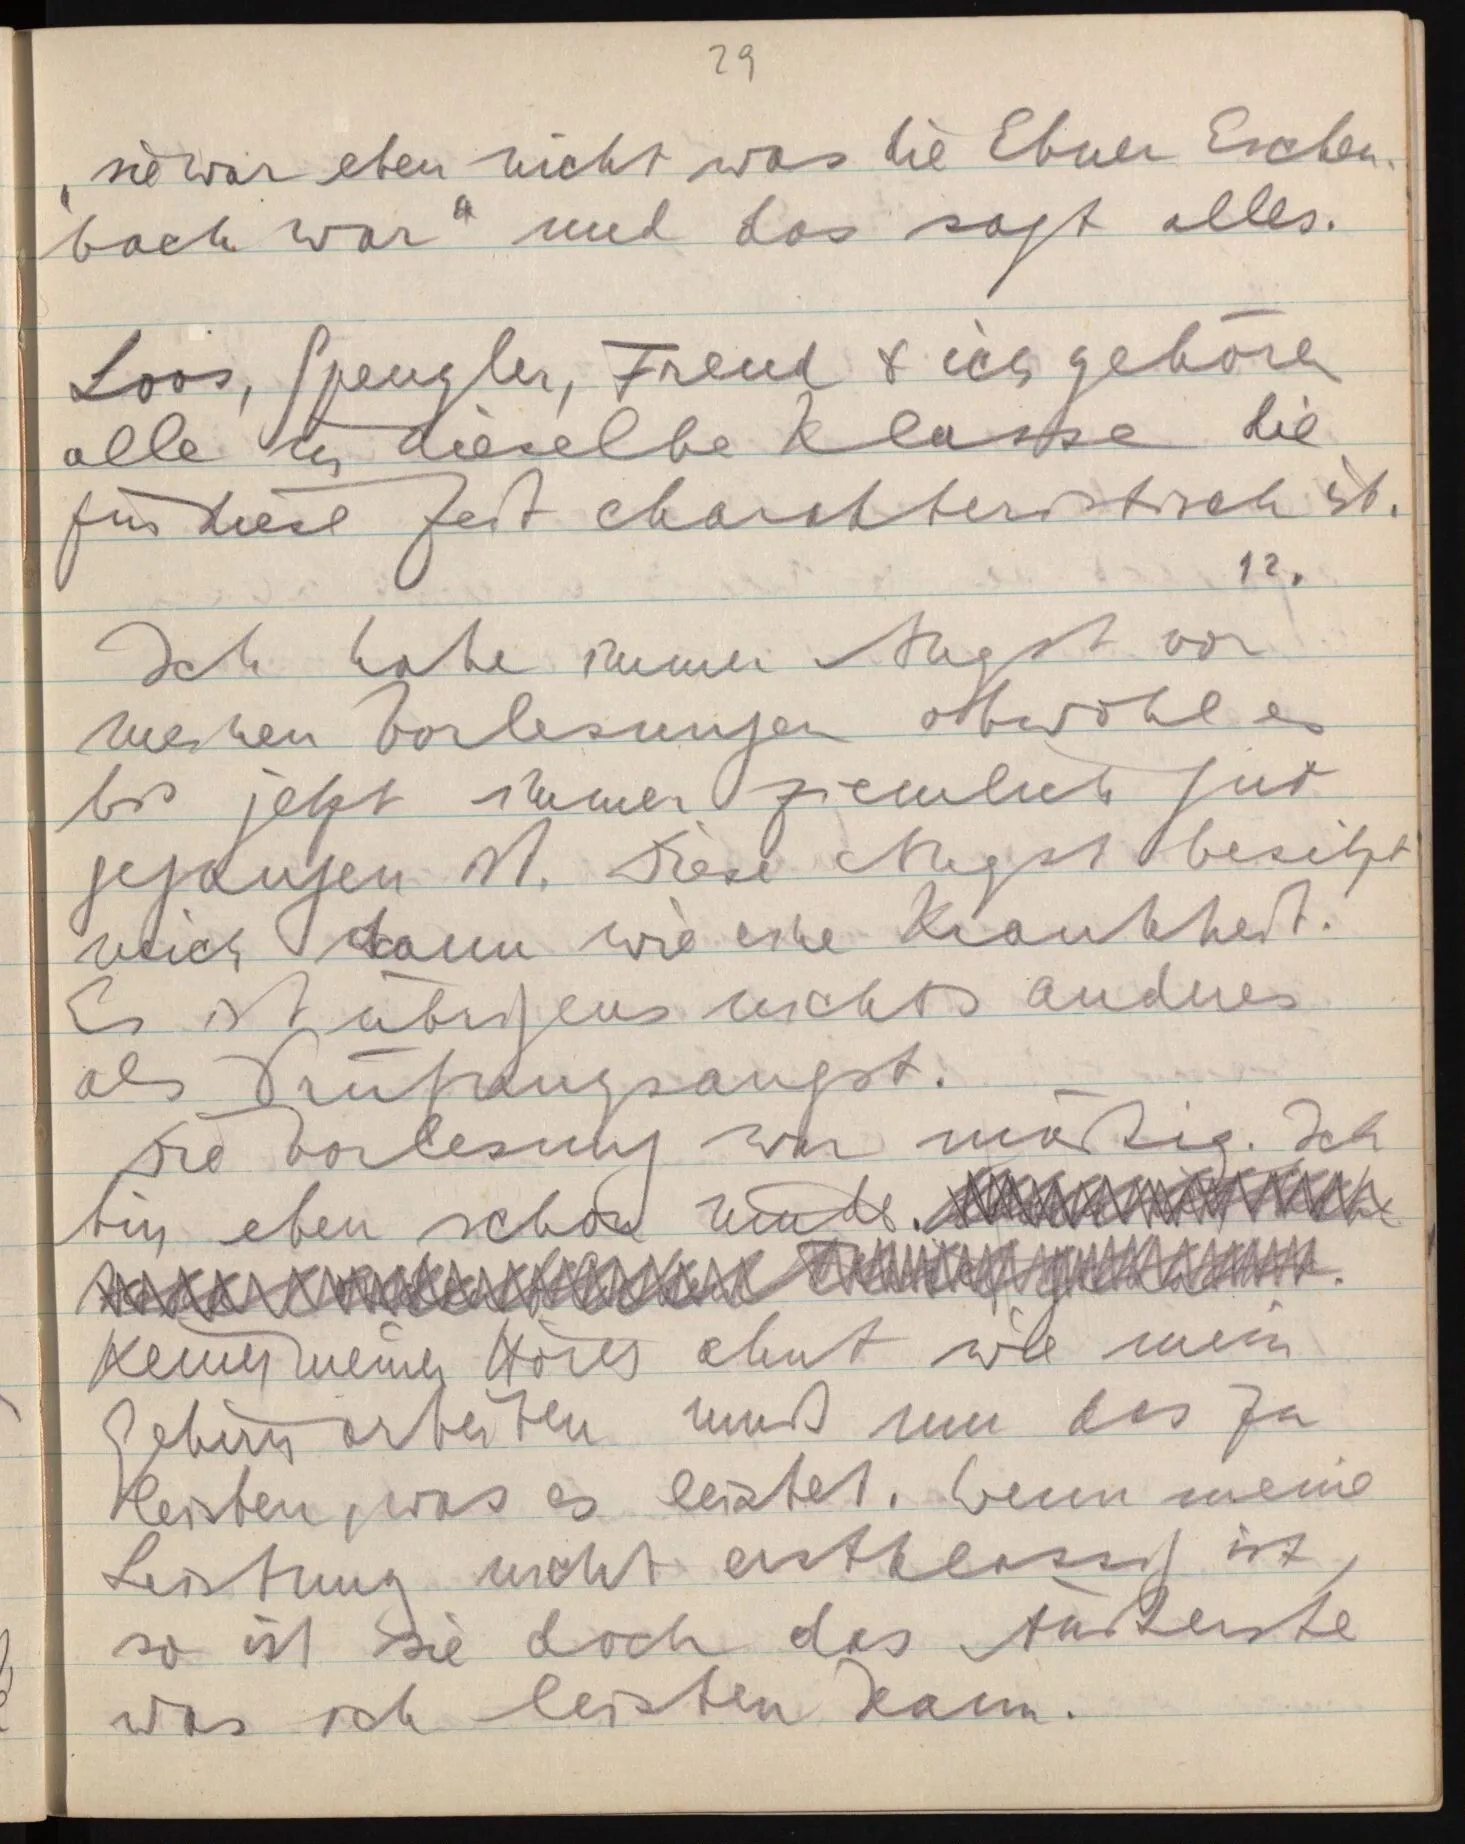 29
„sie war eben nicht was die Ebner Eschen-
bach war“ und das sagt alles.
Loos, Spengler, Freud & ich gehören
alle in dieselbe Klasse die
für diese Zeit charakteristisch ist.
12.
Ich habe immer Angst vor
meinen Vorlesungen obwohl es
bis jetzt immer ziemlich gut
gegangen ist. Diese Angst besitzt
mich dann wie eine Krankheit.
Es ist übrigens nichts anderes
als Prüfungsangst.
Die Vorlesung war mäßig. Ich
bin eben schon müde.
Keiner meiner Hörer ahnt wie mein
Gehirn arbeiten muß um das zu
leisten, was es leistet. Wenn meine
Leistung nicht erstklassig ist,
so ist sie doch das Äußerste
was ich leisten kann.